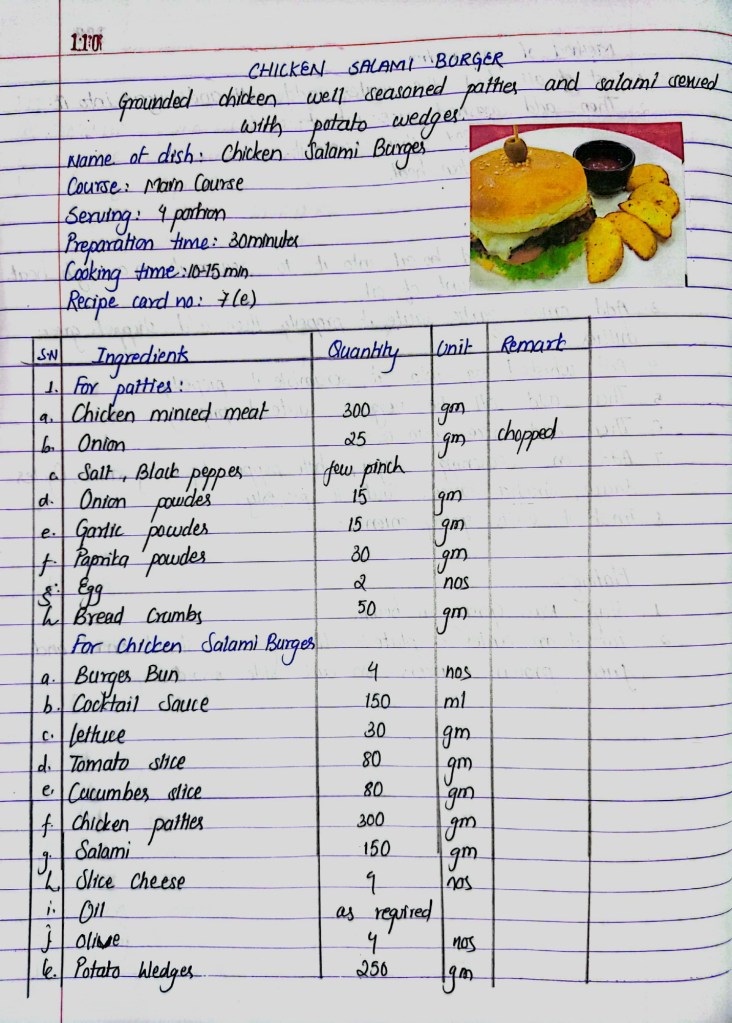 110
CHICKEN SALAMI BURGER
Grounded chicken well seasoned patties and salami served
with potato wedges.
Name of dish: Chicken Salami Burger
Course: Main Course
Serving: 4 portion
Preparation time: 30minutes
Cooking time: 10-15 min
Recipe card no: 7(e)
S.N Ingredients Quantity Unit Remark
1. For patties:
a. Chicken minced meat 300 gm
b. Onion 25 gm chopped
c Salt, Black pepper few pinch
d. Onion powder 15 gm
e. Garlic powder 15 gm
f. Paprika powder 30 gm
g. Egg 2 nos
h Bread Crumbs 50 gm
For Chicken Salami Burger
a. Burger Bun 4 nos
b. Cocktail Sauce 150 ml
c. lettuce 30 gm
d. Tomato slice 80 gm
e. Cucumber slice 80 gm
f. Chicken patties 300 gm
g. Salami 150 gm
h Slice Cheese 4 nos
i. Oil as required
j Olive 4 nos
k. Potato Wedges 250 gm